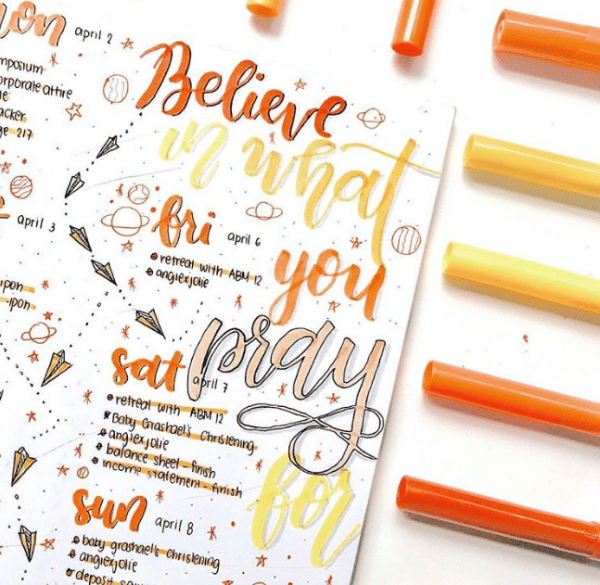 april 2
mposium
orporate attire
acker
ge 217
april 3
ipon
-ipon
Believe
in what
you
pray
for
fri april 6
retreat with ABM 12
angiexjolie
sat april 7
retreat with ABM 12
Baby Grashael's Christening
angiexjolie
balance sheet - finish
income statement - finish
sun april 8
baby grashael's christening
angiexjolie
deposit